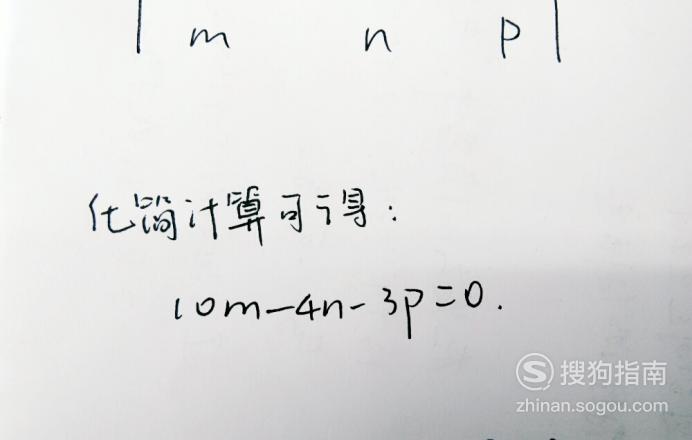 | m n p |
化简计算可得：
10m-4n-3p=0.
搜狗指南
zhinan.sogou.com